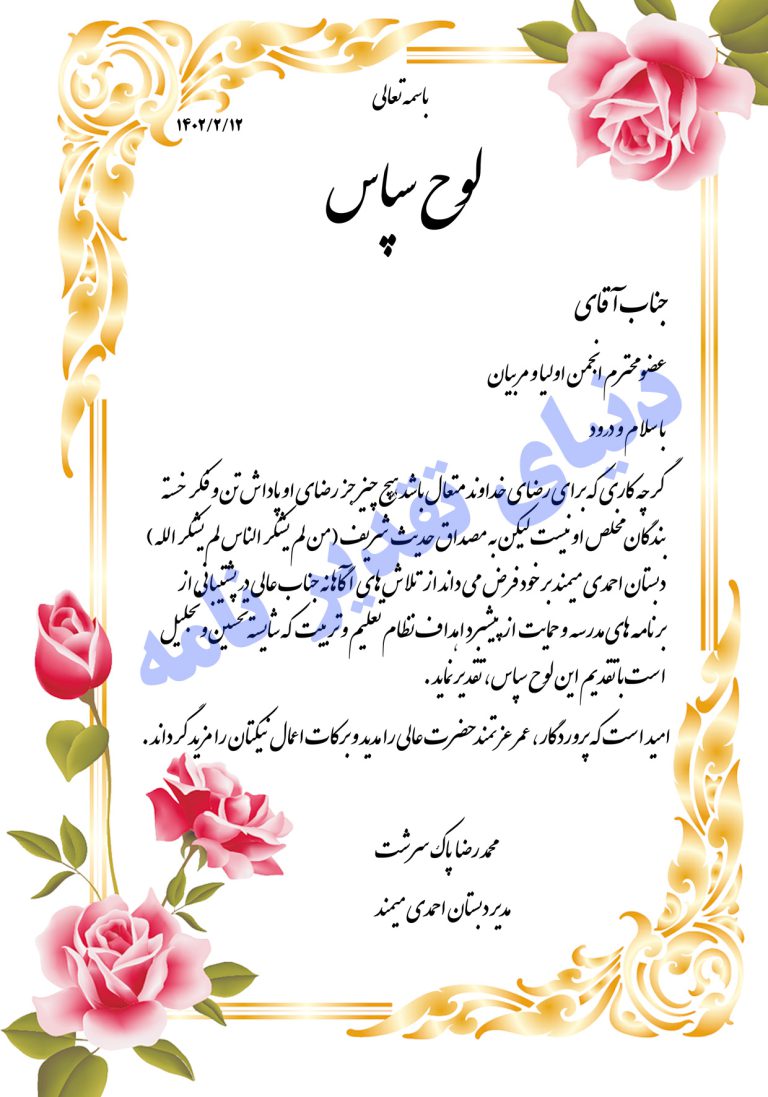 باسمه تعالی
۱۴۰۲/۲/۱۲
لوح سپاس
جناب آقای
عضو محترم انجمن اولیا و مربیان
با سلام و درود
گرچه کاری که برای رضای خداوند متعال باشد هیچ چیز جز رضای او پاداش تن و فکر خسته
بندگان مخلص او نیست لیکن به مصداق حدیث شریف (من لم یشکر الناس لم یشکر الله)
دبستان احمدی میمند بر خود فرض می داند از تلاش های آگاهانه جناب عالی در پشتیبانی از
برنامه های مدرسه و حمایت از پیشبرد اهداف نظام تعلیم و تربیت که شایسته تحسین و تجلیل
است با تقدیم این لوح سپاس، تقدیر نماید.
امید است که پروردگار، عمر عزتمند حضرت عالی را مدید و برکات اعمال نیکتان را مزید گرداند.
محمد رضا پاک سرشت
مدیر دبستان احمدی میمند
دنیای تقدیر نامه